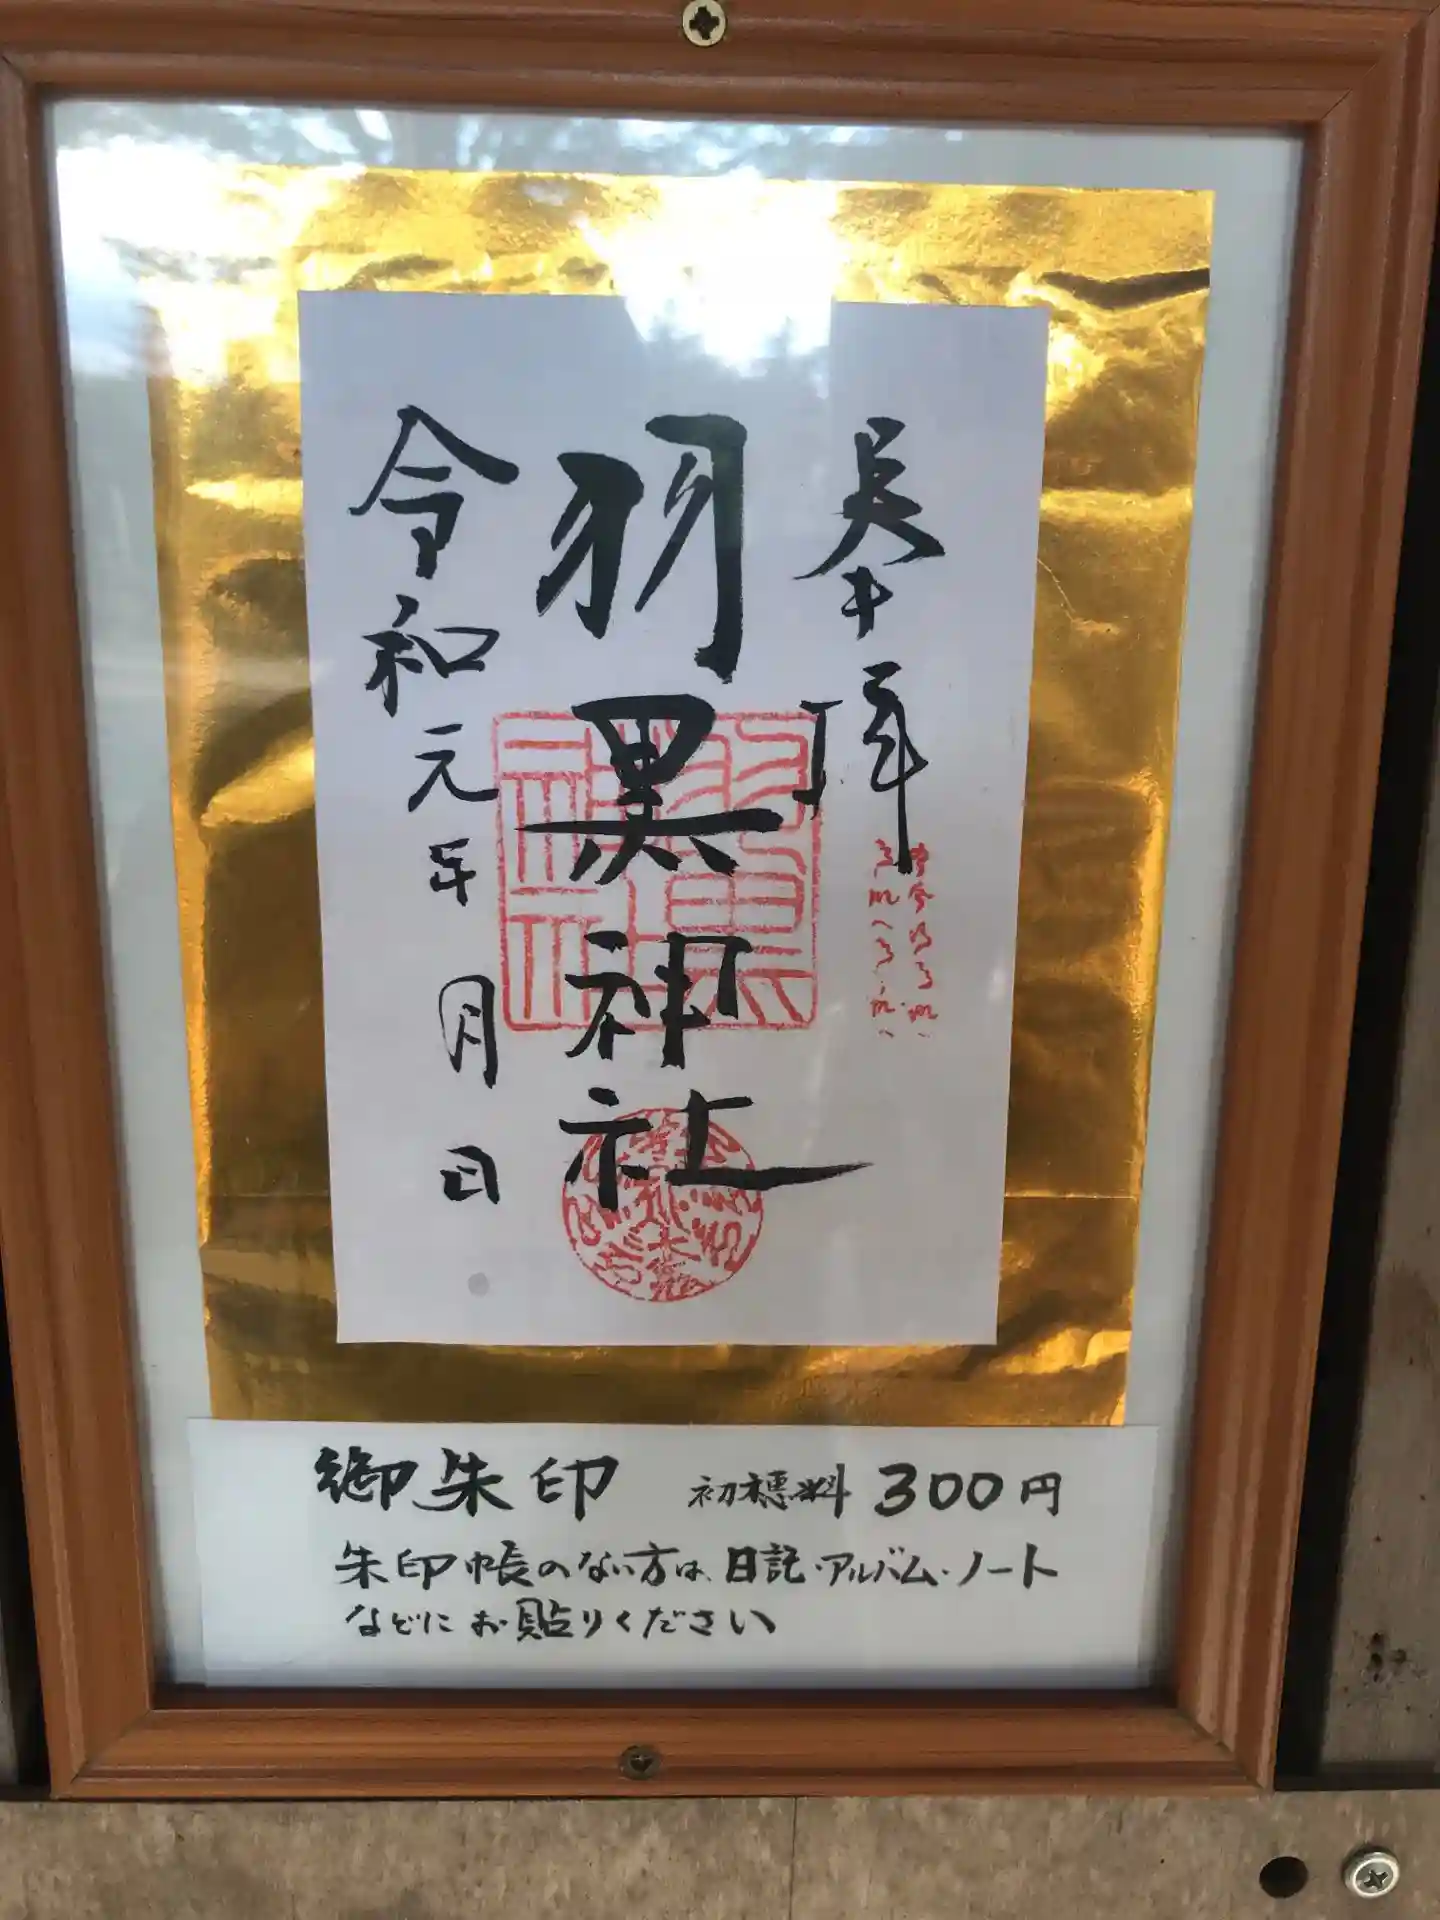 奉拝
羽黒神社
令和元年 月 日
御朱印 初穂料 300円
朱印帳のない方は、日記・アルバム・ノート
などにお貼りください